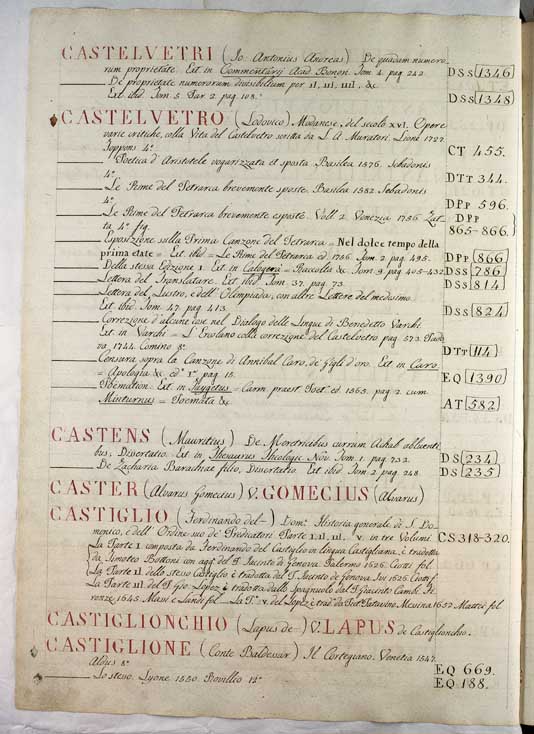 CASTELVETRI (Jo. Antonius Andreas) De quadam numero-
rum proprietate. Ext. in Commentarij Acad. Bonon. Tom. 4. pag. 242. DSS 1346
De proprietate numerorum divisibilium per II, III, IIII, &c.
Ext. ibid. Tom. 5. Par. 2. pag. 108. DSS 1348
CASTELVETRO (Lodovico) Modanese, del secolo XVI. Opere
varie critiche, colla Vita del Castelvetro scritta da L. A. Muratori. Lione 1727.
Foppens 4° CT 455.
Poetica d'Aristotele vogarizzata et sposta. Basilea 1576. Sebadonis
4° DTT 344.
Le Rime del Petrarca brevemente sposte. Basilea 1582. Sebadonis
4° DPP 596.
Le Rime del Petrarca brevemente esposte. Voll. 2. Venezia 1756. Zat-
ta 4° fig. DPP 865-866.
Esposizione sulla Prima Canzone del Petrarca = Nel dolce tempo della
prima etate = Ext. ibid. = Le Rime del Petrarca ed. 1756. Tom. 2. pag. 495. DPP 866
Della stessa Edizione 1. Ext. in Calogerà = Raccolta &c. Tom. 9. pag. 405-432. DSS 786
Lettera del Translatare. Ext. ibid. Tom. 37. pag. 73. DSS 814
Lettera del Lustro, e dell'Olimpiada, con altre Lettere del medesimo.
Ext. ibid. Tom. 47. pag. 413. DSS 824
Correzione d'alcune cose nel Dialogo delle Lingue di Benedetto Varchi.
Ext. in Varchi = L'Ercolano colla correzione del Castelvetro pag. 573. Pado-
va, 1744. Comino 8° DTT 114
Censura sopra la Canzone di Annibal Caro, de' Gigli d'oro. Ext. in Caro
= Apologia &c. ed.e 1.a pag. 15. EQ 1390
Ext. in Taygetus = Carm. praest. Poet. ed. 1565. pag. 2. cum
Minturnus = Poemata &c. AT 582
CASTENS (Mauritius) De Meretricibus currum Achab abluenti-
bus, Dissertatio. Ext. in Thesaurus Theologic. Nov. Tom. 1. pag. 732. DS 234
De Zacharia Barachiae filio, Dissertatio. Ext. ibid. Tom. 2. pag. 248. DS 235
CASTER (Alvarus Gomecius) V. GOMECIUS (Alvarus)
CASTIGLIO (Ferdinando del-) Dom.° Historia generale di S. Do-
menico, e dell'Ordine suo de' Predicatori Parte I, II, III, V. in tre Volumi. CS 318-320.
La Parte I. composta da Ferdinando del Castiglio in lingua Castigliana, è tradotta
da Timoteo Bottoni con agg.e del P. Jacinto di Genova. Palermo 1626. Ciotti f.
La Parte II. dello stesso Castiglio è tradotta dal P. Jacinto de Genova. Ivi 1626. Ciotti f.
La Parte III. del P. Gio. Lopez è tradotta dallo Spagnuolo dal P. Giacinto Cambi. Fi-
renze 1645. Massi e Landi fol. — La P.e V. del Lopez è trad. da Messina 1652. Mattei fol.
CASTIGLIONCHIO (Lapus de-) V. LAPUS de Castiglionchio.
CASTIGLIONE (Conte Baldessar) Il Cortegiano. Venetia 1547.
Aldus 8° EQ 669.
Lo stesso. Lyone 1550. Rovillio 12° EQ 188.